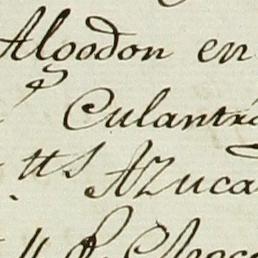 Algodon en
Culantr
tts Azuca